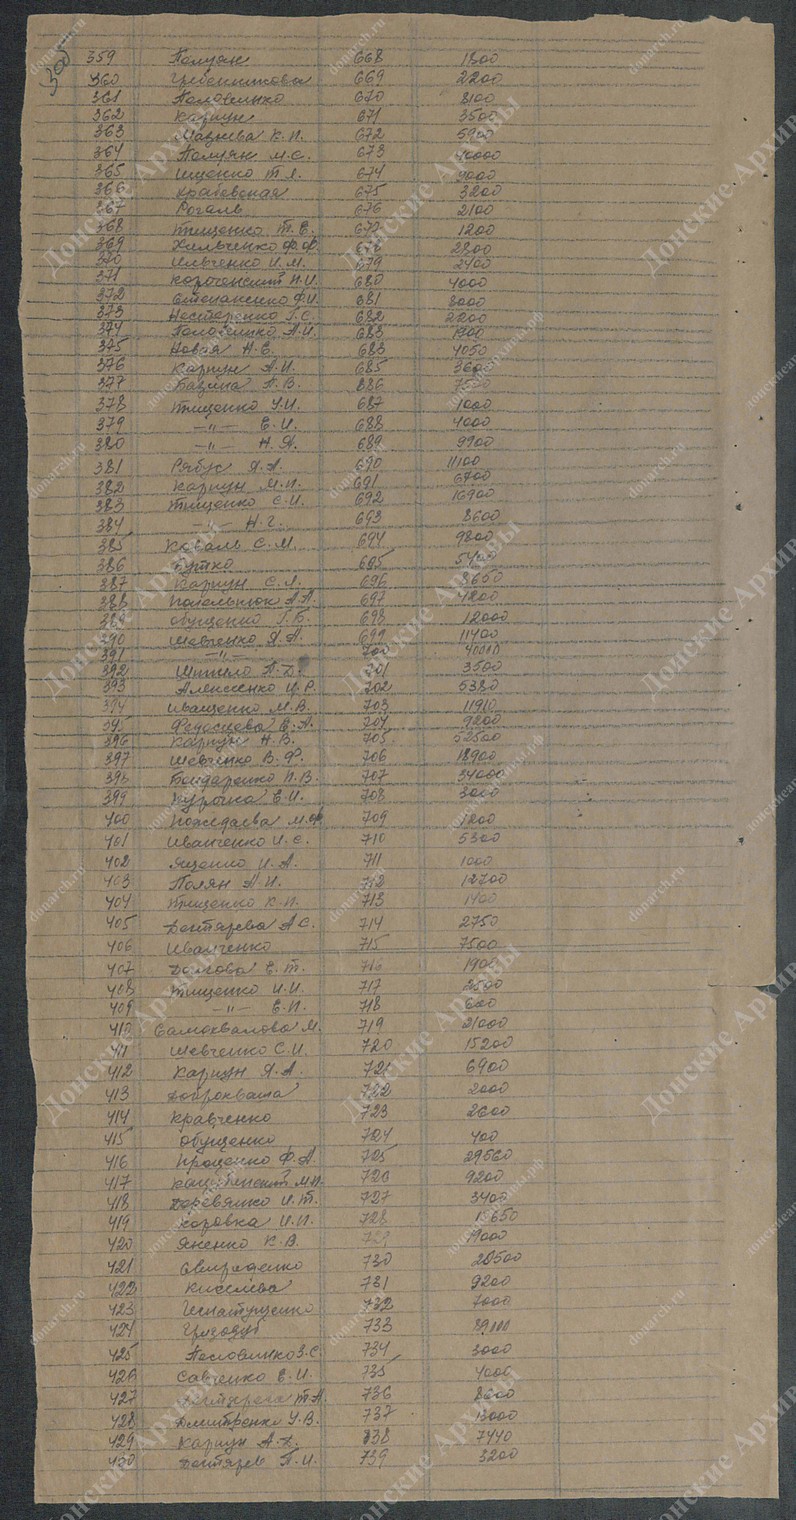 300
359 Полуян 668 1800
360 Гребенникова 669 2200
361 Половинко 670 8100
362 Карпун 671 3500
363 К.П. 672 5900
364 Полуян М.С. 673 40000
365 Ищенко 674 9000
366 675 3200
367 Рогаль 676 2100
368 Тищенко Т.Е. 677 1200
369 Хильченко Ф.Ф. 678 2800
370 Ильченко И.М. 679 2400
371 680 4000
372 Степаненко Ф.И. 681 8000
373 Нестеренко Г.С. 682 2200
374 Половинко А.И. 683
375 Новая Н.Е. 683 4050
376 Карпун А.И. 685
377 П.В. 686
378 Тищенко У.И. 687 1000
379 -"- Е.И. 688 4000
380 -"- Н.Я. 689 9900
381 Рябун Я.А. 690 11100
382 Карпун М.И. 691 6700
383 Тищенко С.И. 692 16900
384 -"- Н.Г. 693 8600
385 Коваль С.М. 694 9800
386 Бутко 695 5400
387 Карпун С.Л. 696 8650
388 А.А. 697 4200
389 Обущенко Г.Б. 698 12000
390 Шевченко Я.А. 699 11400
391 -"- 700 40000
392 701 3500
393 Алексеенко И.Р. 702 5380
394 Иващенко М.В. 703 11910
395 Федосеева В.А. 704 9200
396 Карпун Н.В. 705 52500
397 Шевченко В.Ф. 706 18900
398 Бондаренко П.В. 707 34000
399 Курочка Е.И. 708 3000
400 Пожедаева М.Ф. 709 1200
401 Иванченко И.С. 710 5300
402 Яценко И.А. 711 1000
403 Полян А.И. 712 12700
404 Тищенко К.П. 713 1400
405 Дектярева А.С. 714 2750
406 Иванченко 715 7500
407 Долгова Е.Т. 716 1900
408 Тищенко И.И. 717 2500
409 -"- Е.И. 718 600
410 Самохвалова М. 719 21000
411 Шевченко С.И. 720 15200
412 Карпун Я.А. 721 6900
413 Доброкваша 722 2000
414 Кравченко 723 2600
415 Обущенко 724 400
416 Проценко Ф.А. 725 29560
417 М.И. 726 9200
418 Деревянко И.Т. 727 3400
419 Коровка И.И. 728 15650
420 Яненко К.В. 729 19000
421 Свириденко 730 20500
422 Киселева 731 9200
423 Игнатущенко 732 7000
424 733 89100
425 Половинко З.С. 734 3000
426 Савченко Е.И. 735 4000
427 Дектярева Т.А. 736 8600
428 Дмитренко У.В. 737 13000
429 Карпун А.Д. 738 7440
430 Дектярев П.И. 739 3200
Донские Архивы
donarch.ru
донскиеархивы.рф